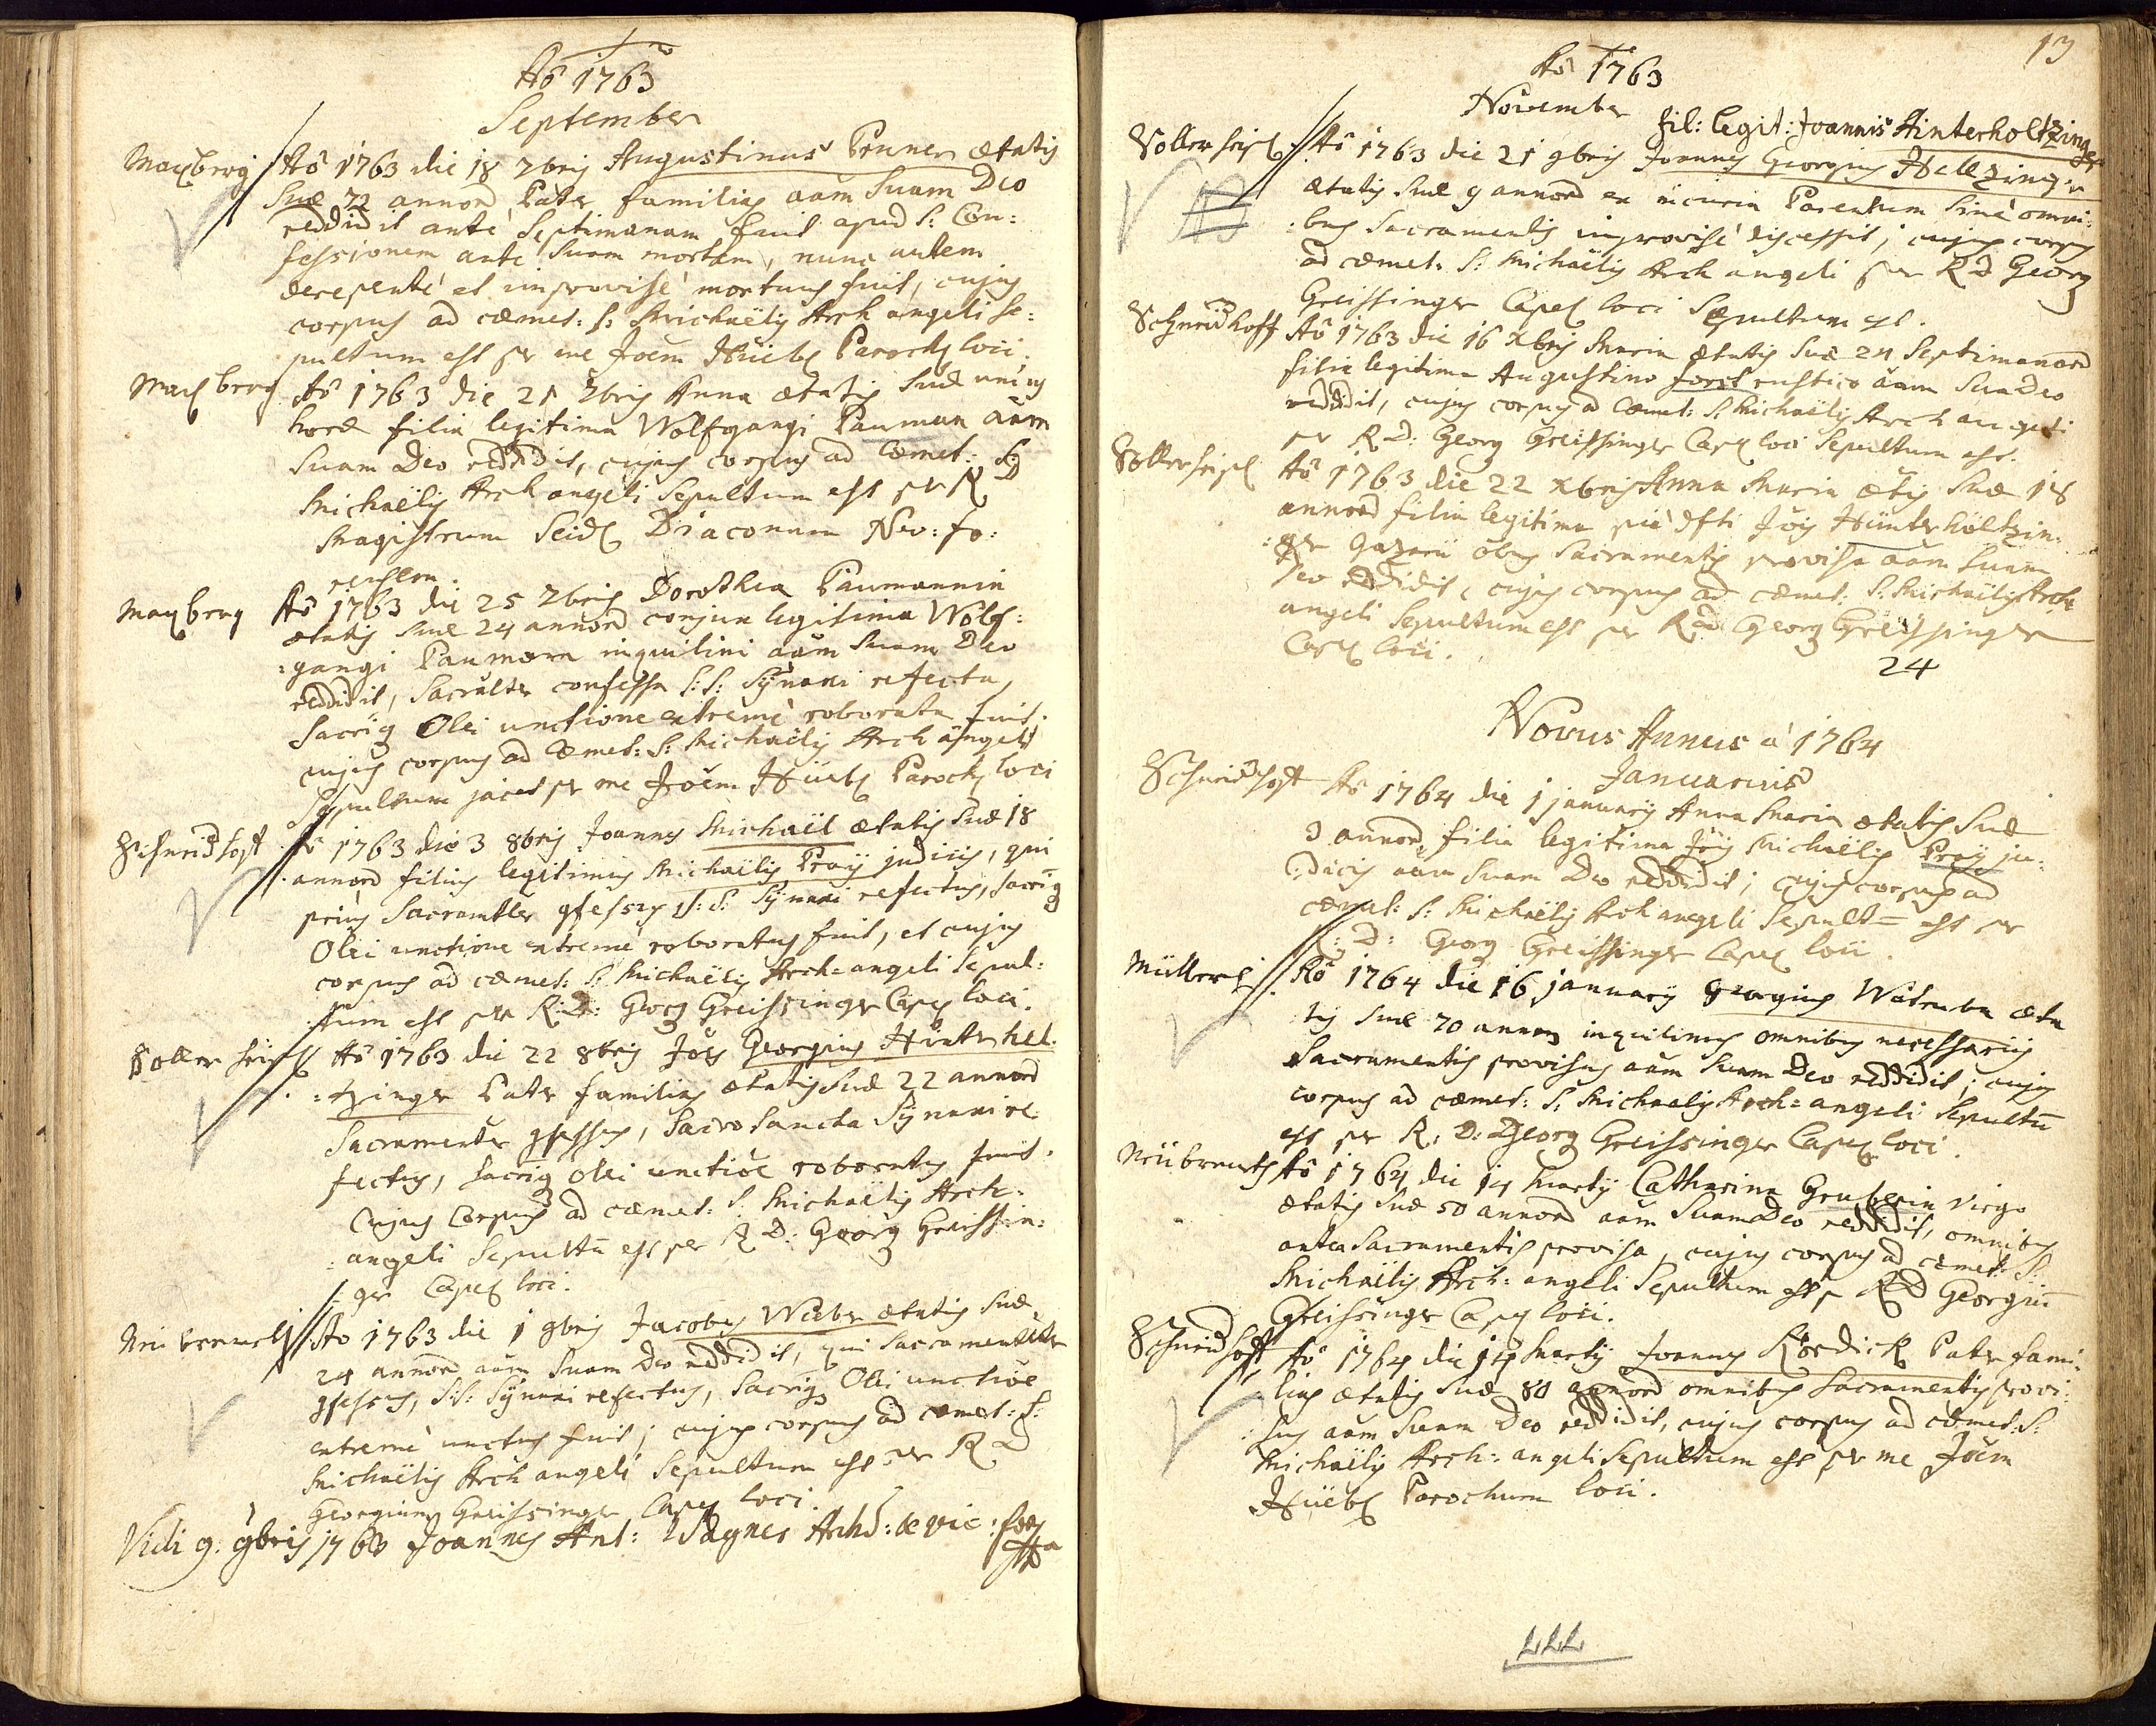 Aô 1763
September
Maxberg Aô 1763 die 18 7bris Augustinus Pruner ætatis
Suæ 72 annorû Pater familias aâm Suam Deo
reddidit ante Septimanam fuit apud S: Con:
fessionem ante Suam mortem, nunc autem
derepentè et improvisè mortuus fuit, cujus
corpus ad cæmet: S: Michaëlis Arch angeli se:
pultum est per me Joêm Hüebl Parochû loci.
Maxberg Aô 1763 die 21 7bris Anna ætatis Suæ unius
horæ filia legitima Wolfgangi Pauman aâm
Suam Deo reddidit, cujus corpus ad Cæmet: S:
Michaëlis Arch angeli Sepultum est per R D
Magistrum Seidl Diaconum Neo: fo:
rensem.
Maxberg Aô 1763 die 25 7bris Dorothea Paumannin
ætatis Suæ 24 annorû conjux legitima Wolf:
:gangi Pauman inquilini aâm Suam Deo
reddidit, Sacraliter confessa S:S: Sÿnaxi refecta,
Sacriq Olei unctione extremè roborata fuit.
cujus corpus ad Cæmet: S: Michaëlis Arch angeli
Sepultum jacet per me Joêm Hüebl Parochû loci
Schneidhoft Aô 1763 die 3 8bris Joannes Michaël ætatis Suæ 18
annorû filius legitimus Michaëlis Praÿ judicis, qui
priùs Sacramtler gfessus S: S: Sÿnaxi refectus, Sacriq
Olei unctione extremè roboratus fuit, et cujus
corpus ad cæmet: S: Michaëlis Arch=angeli Sepul:
:tum est per R: D: Georg Greissinger Capel loci.
Aô 1763 die 22 8bris Jôes Georgius Hinterhel:
:tzinger Pater familias ætatis Suæ 22 annorû
Sacramenter gfessus, Sacro Sancta Sÿnaxi re:
fectus, Sacriq Olei unctiôe roboratus fuit.
Cujus Corpus ad cæmet: S: Michaëlis Arch=
:angeli Sepultû est per R D: Georg Greissin:
:ger Capel loci.
Aô 1763 die 1 9bris Jacobus Weber ætatis Suæ
24 annorû aâm Suam Deo reddidit, qui Sacramentliter
gfessus, S:S: Sÿnaxi refectus, Sacriq Olei unctiôe
extremè unctus fuit; cujus corpus ad cæmet: S:
Michaëlis Arch angeli Sepultum est per R D
Georgium Greissinger Capel loci.
Vidi 9. 9bris 1763 Joannes Ant: Wagner Archid: & vic: for
13
Aô 1763
November
fil: legit: Joannis Hinterholtzinger
Aô 1763 die 21 9bris Joannes Georgius Helzinger
ætatis Suæ 9 annorû ex incuria Parentum Sine omni:
:bus Sacramentis improvisè discessit; cujus corpus
ad cæmet: S: Michaëlis Arch angeli per R D Georg
Greissinger Capel loci Sepultum est.
Schneidhoff Aô 1763 die 16 Xbris Maria ætatis Suæ 24 Septimanarû
filia legitima Augustino forst rustico aâm Suâ Deo
reddidit, cujus corpus ad Cæmet: S: Michaëlis Arch angeli
per R D: Georg Greissinger Capel loci Sepultum est.
Aô 1763 die 22 Xbris Anna Maria ætis Suæ 18
annorû filia legitima piè dfti Jôis Hünterhöltzin:
:ger oêbus Sacramentis provisa aâm Suam
Deo reddidit, cujus corpus ad cæmet: S: Michaëlis Arch
angeli Sepultum est per R D Georg Greissinger
Capel loci.
24
Novus Annus a 1764
Januarius
Schneidhoft Aô 1764 die 1 januarÿ Anna Maria ætatis Suæ
3 annorû filia legitima Jôis Michaëlis Praÿ ju:
:dicis aâm Suam Deo reddidit; cujus corpus ad
cæmet: S: Michaëlis Arch angeli Sepult= est per
R: D: Georg Greissinger Capel loci.
Aô 1764 die 16 januarÿ Georgius Watruba æta
tis Suæ 70 annorû inquilinus omnibus necessariis
Sacramentis provisus aâm Suam Deo reddidit; cujus
corpus ad cæmet: S: Michaelis Arch=angeli Sepultû
est per R: D: Georg Greissinger Capel loci.
Aô 1764 die 14 Martÿ Catharina Gruberin Virgo
ætatis Suæ 50 annorû aâm Suam Deo reddidit, omnibus
antea Sacramentis provisa, cujus corpus ad cæmet: S:
Michaëlis Arch: angeli Sepultum est p R D Georgiû
Greissinger Capel loci.
Schneidhoft Aô 1764 die 14 Martÿ Joannes Kordick Pater fami:
lias ætatis Suæ 80 annorû omnibus Sacramentis provi:
:sus aâm Suam Deo reddidit, cujus corpus ad cæmet: S:
Michaëlis Arch: angeli Sepultum est per me Joêm
Hüebl Parochum loci.